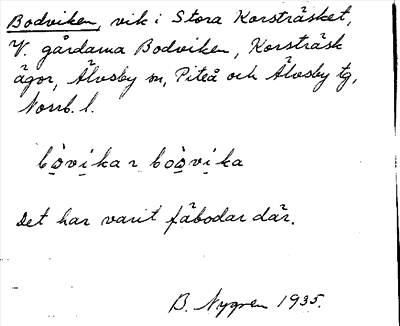 Bodviken, vik i Stora Korsträsket,
V. gårdarna Bodviken, Korsträsk
ägor, Älvsby sn, Piteå och Älvsby tg,
Norrb. l.
bò̱vi̱ka ~ boò̱vi̱ka
Det har varit fäbodar där.
B. Nygren 1935.